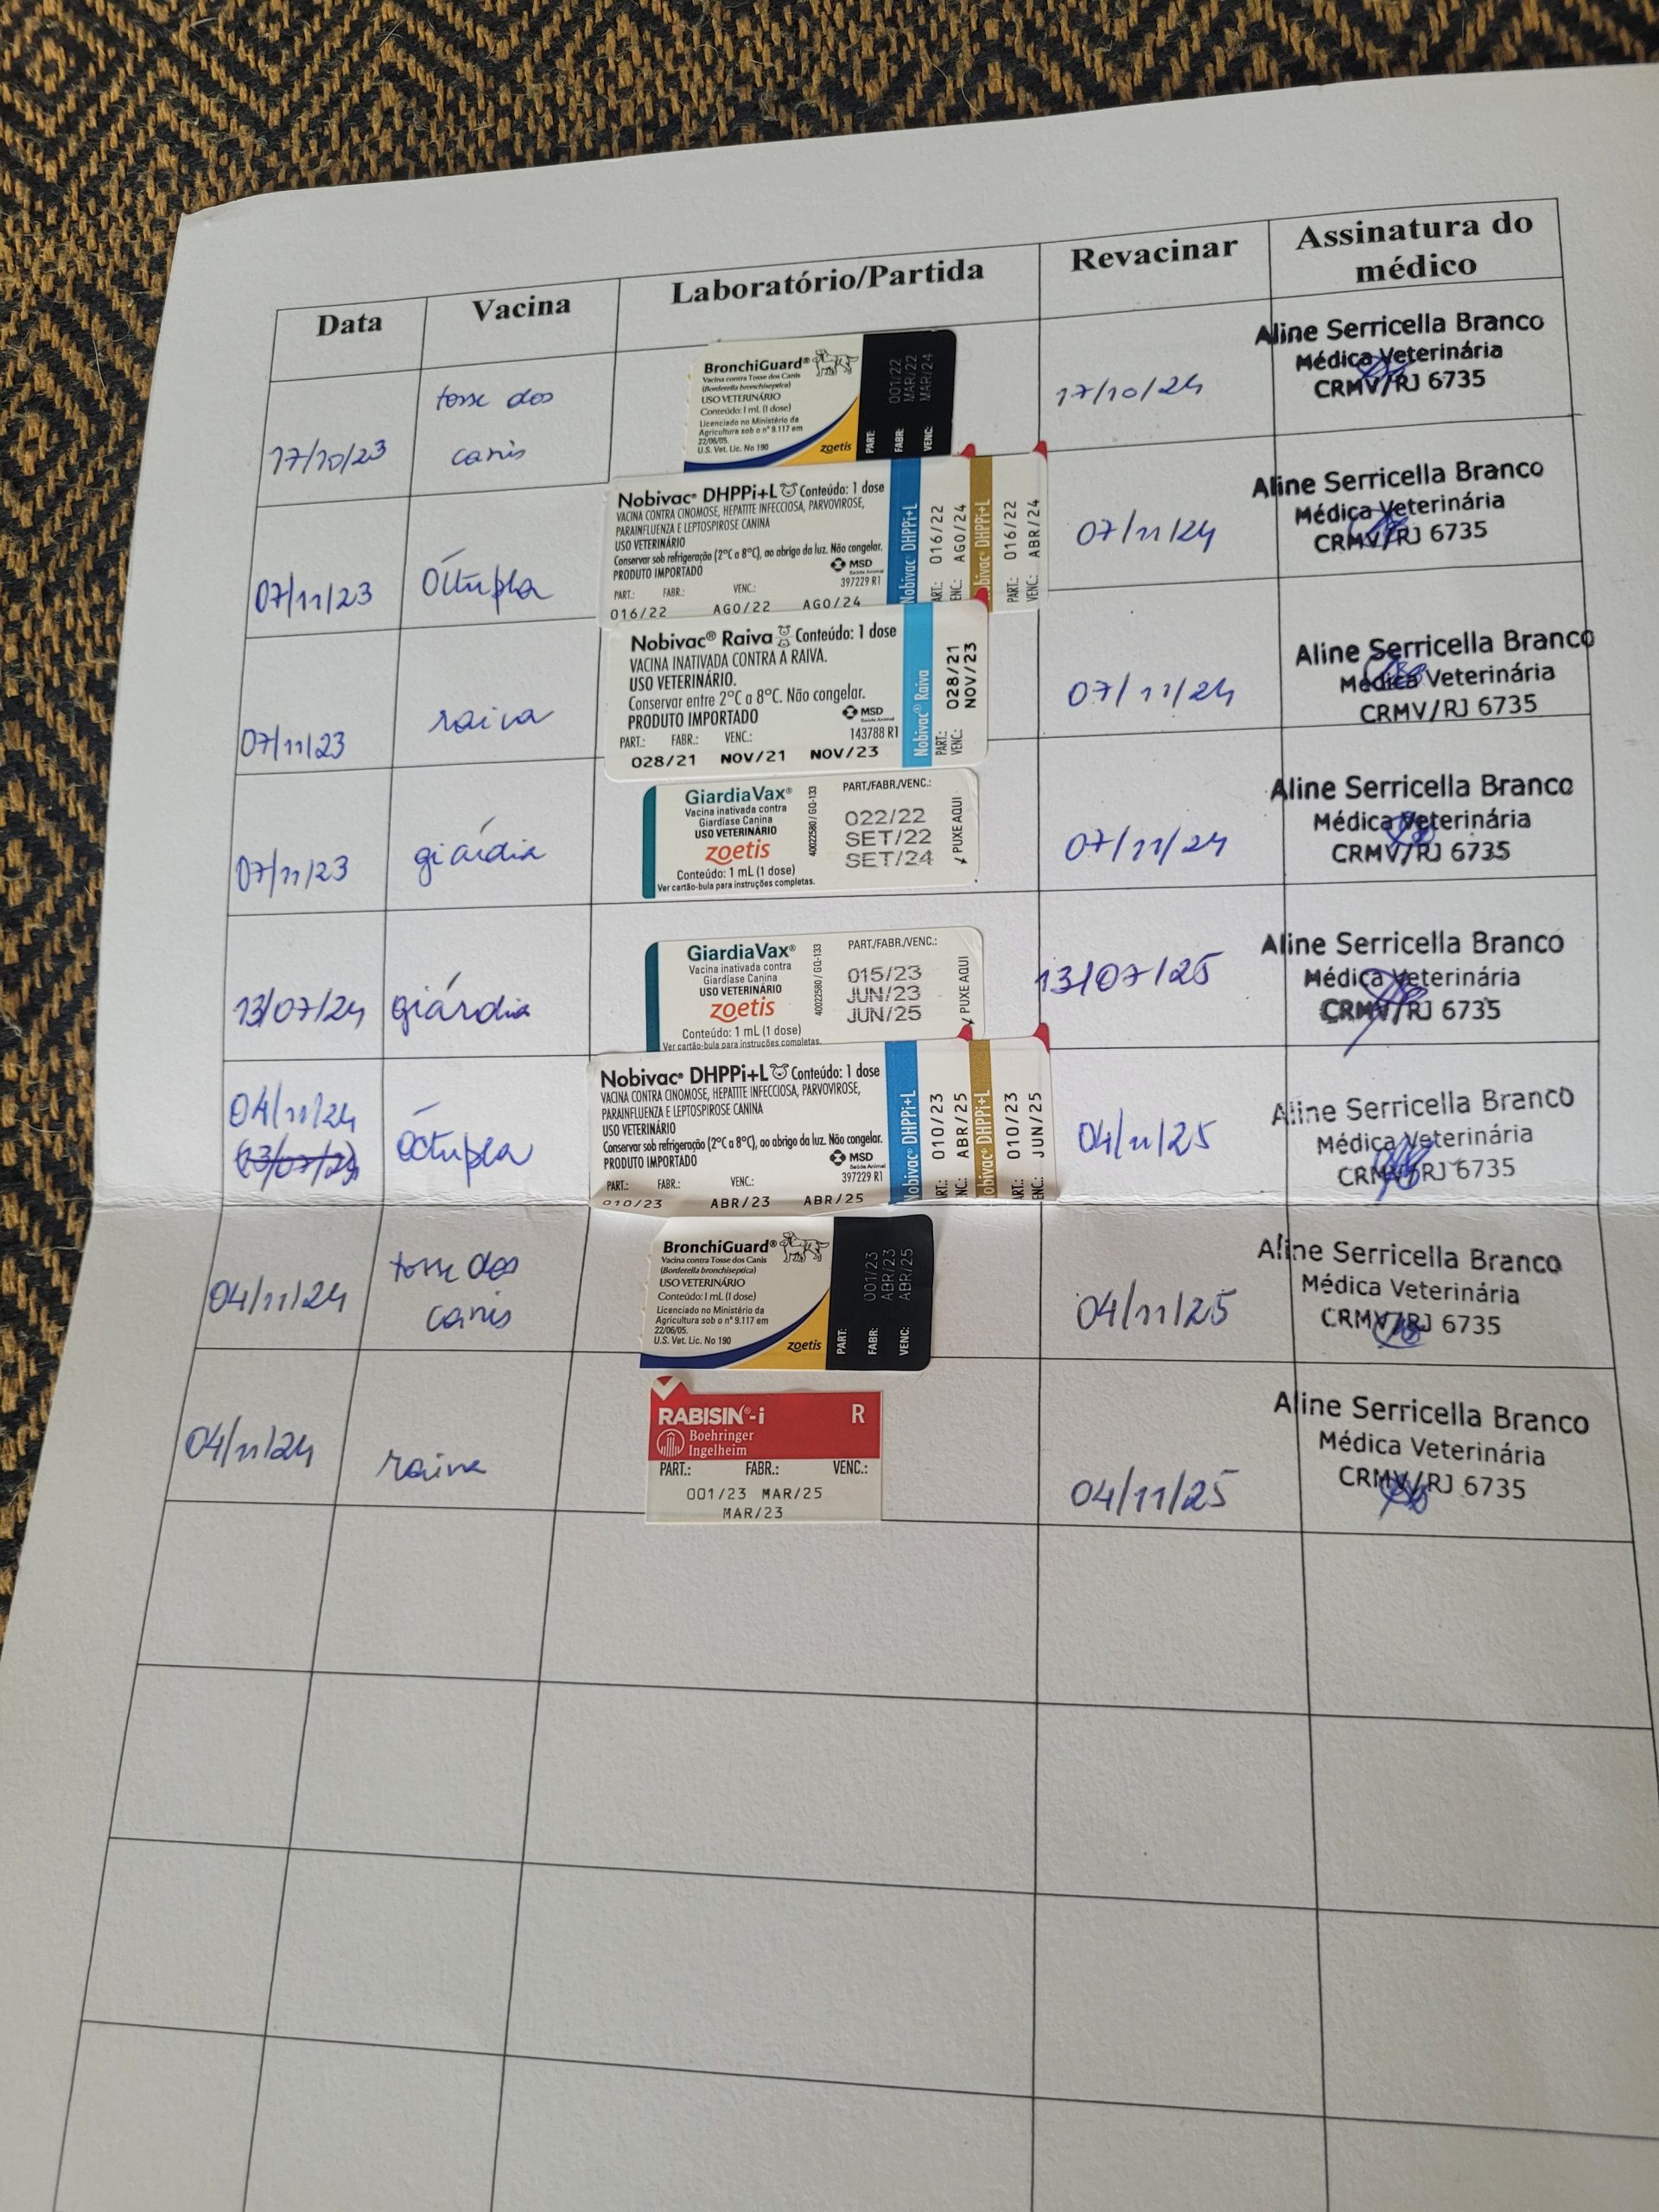 Data
Vacina
Laboratório/Partida
Revacinar
Assinatura do
médico
17/10/23
tosse dos
canis
BronchiGuard®
Vacina contra Tosse dos Canis
(Bordetella bronchiseptica)
USO VETERINÁRIO
Conteúdo: 1 mL (1 dose)
Licenciado no Ministério da
Agricultura sob o nº 9.117 em
22/06/05.
U.S. Vet. Lic. No 190
zoetis
PART: 001/22
FABR: MAR/22
VENC: MAR/24
17/10/24
Aline Serricella Branco
Médica Veterinária
CRMV/RJ 6735
07/11/23
Óctupla
Nobivac® DHPPi+L Conteúdo: 1 dose
VACINA CONTRA CINOMOSE, HEPATITE INFECCIOSA, PARVOVIROSE,
PARAINFLUENZA E LEPTOSPIROSE CANINA
USO VETERINÁRIO
Conservar sob refrigeração (2°C a 8°C), ao abrigo da luz. Não congelar.
PRODUTO IMPORTADO
MSD
Saúde Animal
397229 R1
PART.: FABR.: VENC.:
016/22 AGO/22 AGO/24
Nobivac® DHPPi+L
ART: 016/22
ENC: AGO/24
obivac® DHPPi+L
PART: 016/22
VENC: ABR/24
07/11/24
Aline Serricella Branco
Médica Veterinária
CRMV/RJ 6735
07/11/23
raiva
Nobivac® Raiva Conteúdo: 1 dose
VACINA INATIVADA CONTRA A RAIVA.
USO VETERINÁRIO.
Conservar entre 2°C a 8°C. Não congelar.
PRODUTO IMPORTADO
MSD
Saúde Animal
143788 R1
PART.: FABR.: VENC.:
028/21 NOV/21 NOV/23
Nobivac® Raiva
PART.: 028/21
VENC.: NOV/23
07/11/24
Aline Serricella Branco
Médica Veterinária
CRMV/RJ 6735
07/11/23
giárdia
GiardiaVax®
Vacina inativada contra
Giardíase Canina
USO VETERINÁRIO
zoetis
Conteúdo: 1 mL (1 dose)
Ver cartão-bula para instruções completas.
40022580 / GQ-133
PART./FABR./VENC.:
022/22
SET/22
SET/24
PUXE AQUI
07/11/24
Aline Serricella Branco
Médica Veterinária
CRMV/RJ 6735
13/07/24
giárdia
GiardiaVax®
Vacina inativada contra
Giardíase Canina
USO VETERINÁRIO
zoetis
Conteúdo: 1 mL (1 dose)
Ver cartão-bula para instruções completas.
40022580 / GQ-133
PART./FABR./VENC.:
015/23
JUN/23
JUN/25
PUXE AQUI
13/07/25
Aline Serricella Branco
Médica Veterinária
CRMV/RJ 6735
04/11/24
(13/07/24)
Óctupla
Nobivac® DHPPi+L Conteúdo: 1 dose
VACINA CONTRA CINOMOSE, HEPATITE INFECCIOSA, PARVOVIROSE,
PARAINFLUENZA E LEPTOSPIROSE CANINA
USO VETERINÁRIO
Conservar sob refrigeração (2°C a 8°C), ao abrigo da luz. Não congelar.
PRODUTO IMPORTADO
MSD
Saúde Animal
397229 R1
PART.: FABR.: VENC.:
010/23 ABR/23 ABR/25
Nobivac® DHPPi+L
RT.: 010/23
NC.: ABR/25
obivac® DHPPi+L
ART.: 010/23
ENC.: JUN/25
04/11/25
Aline Serricella Branco
Médica Veterinária
CRMV/RJ 6735
04/11/24
tosse dos
canis
BronchiGuard®
Vacina contra Tosse dos Canis
(Bordetella bronchiseptica)
USO VETERINÁRIO
Conteúdo: 1 mL (1 dose)
Licenciado no Ministério da
Agricultura sob o nº 9.117 em
22/06/05.
U.S. Vet. Lic. No 190
zoetis
PART: 001/23
FABR: ABR/23
VENC: ABR/25
04/11/25
Aline Serricella Branco
Médica Veterinária
CRMV/RJ 6735
04/11/24
raiva
RABISIN®-i R
Boehringer
Ingelheim
PART.: FABR.: VENC.:
001/23 MAR/25
MAR/23
04/11/25
Aline Serricella Branco
Médica Veterinária
CRMV/RJ 6735